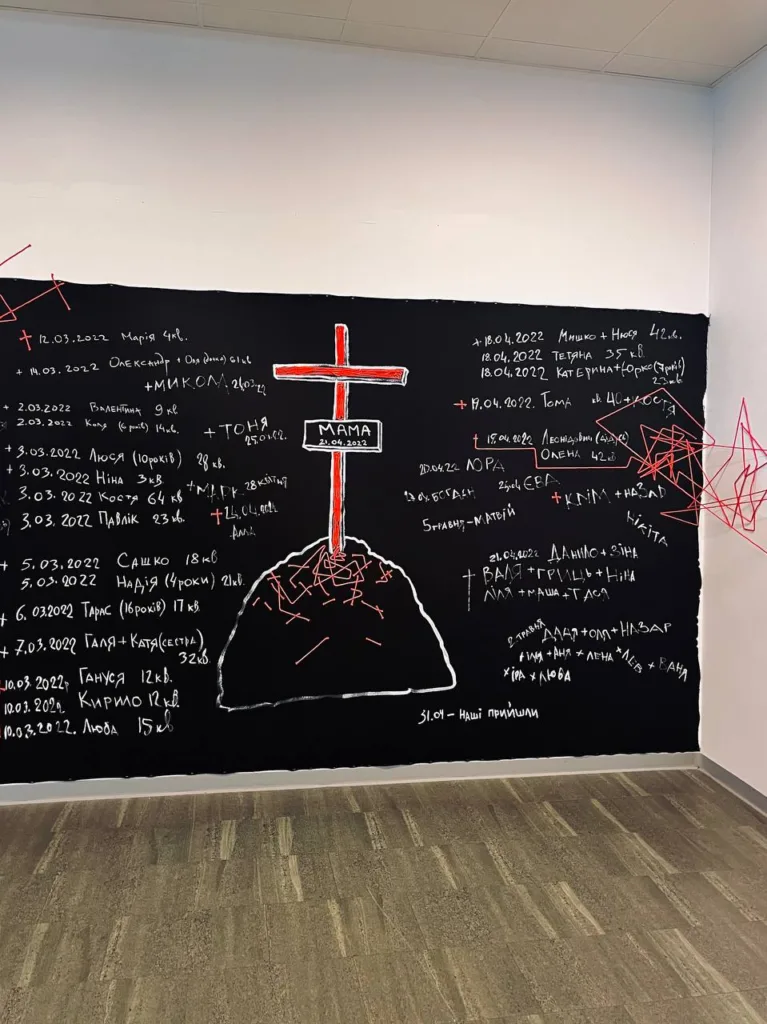 12.03.2022 Марія 4кв.
+ 14.03.2022 Олександр + Оля (дочка) 61 кв
+ МИКОЛА
+ 2.03.2022 Валентина 9 кв
2.03.2022 Катя (6 років) 14 кв.
+ ТОНЯ
+ 3.03.2022 Люся (10років) 28 кв.
+ 3.03.2022 Ніна 3кв
3.03.2022 Костя 64 кв
+ МАРК 28 квітня
3.03.2022 Павлік 23 кв.
+ 24.04
Алла
+ 5.03.2022 Сашко 18кв
5.03.2022 Надія (4роки) 21кв.
+ 6.03.2022 Тарас (16років) 17 кв.
+ 7.03.2022 Галя + Катя(сестра)
32кв.
10.03.2022р Гануся 12кв.
10.03.202 Кирило 12кв.
10.03.2022. Люба 15кв
МАМА
21.04.2022
+ 18.04.2022 Мишко + Нюся 42кв.
18.04.2022 Тетяна 35 кв
18.04.2022 Катерина + Юрко(7років)
23кв
+ 19.04.2022. Тома кв. 40 + КОСТЯ
+ 19.04.2022 Леонідович
Олена 42кв
20.04.22 ЮРА
БОГДАН
ЄВА
+ КЛІМ + НАЗАР
5 травня - МАТВІЙ
НІКІТА
21.04.2022 ДАНІЛО + ЗІНА
ВАЛЯ + ГРИЦЬ + НІНА
ЛІЛЯ + МАША + ТАСЯ
2 травня ДАЦЯ + ОЛЯ + НАЗАР
+ ІЛЛЯ + АНЯ × ЛЕНА × ЛЕВ × ВАНЯ
× ІРА × ЛЮБА
31.04 – НАШІ ПРИЙШЛИ